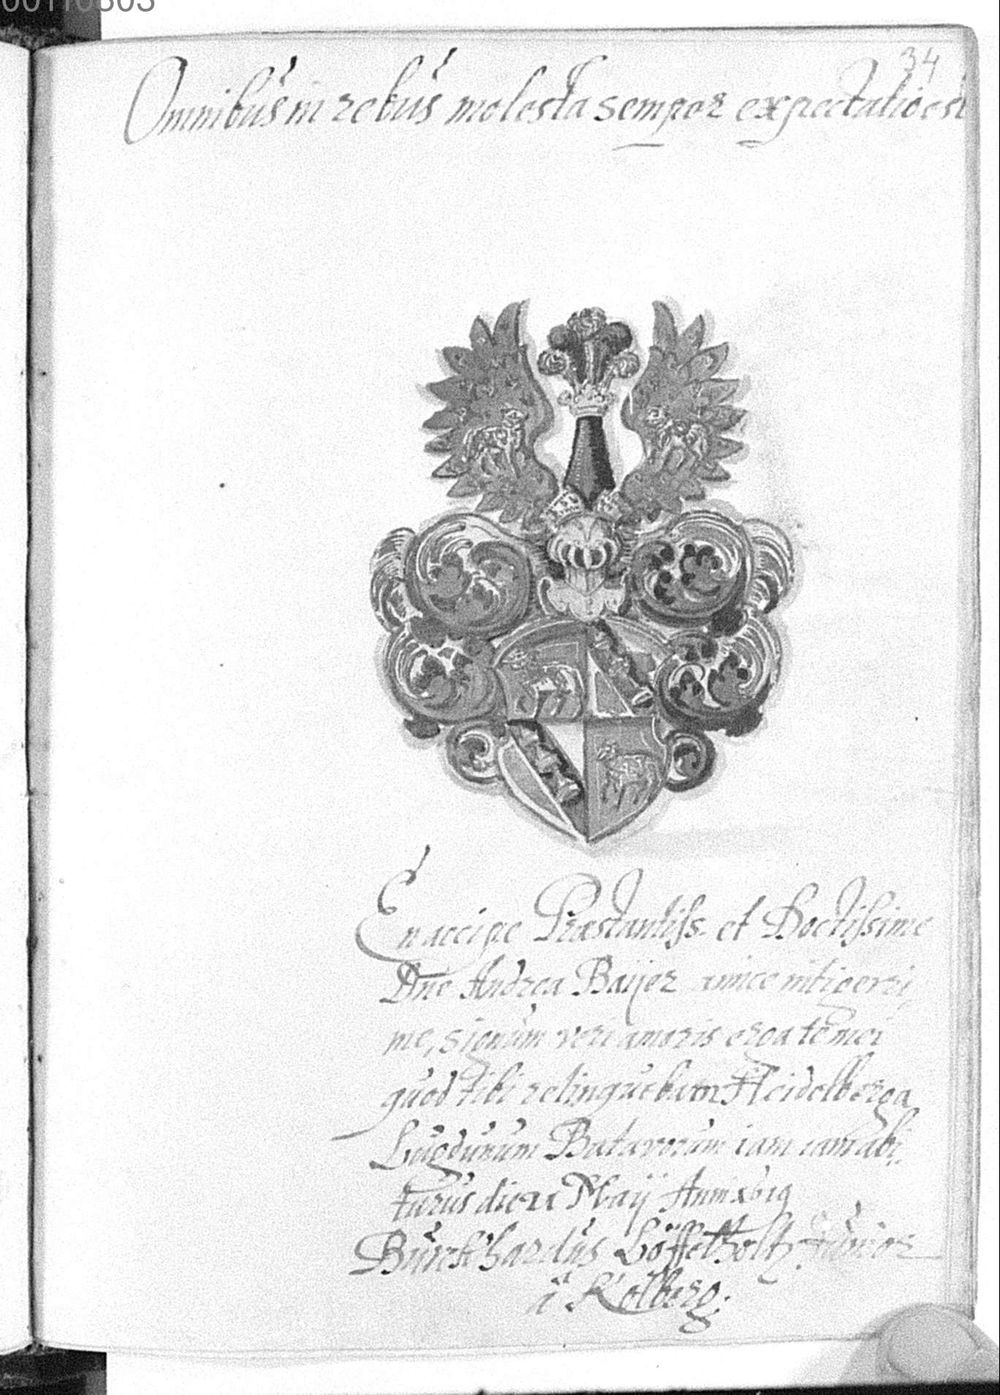 00110803
34
Omnibus in rebus molesta semper expectatio est
En accipe Præstantiss. et Doctissime
Dne Andrea Baijer amice integerri
me, signum veri amoris erga te mei
quod tibi relinquebam Heidelberga
Lugdunum Batavorum iam iam abi
turus die 21 Maij Anni 1619
Burckhardus Löffelholtz Junior
à Kolberg.